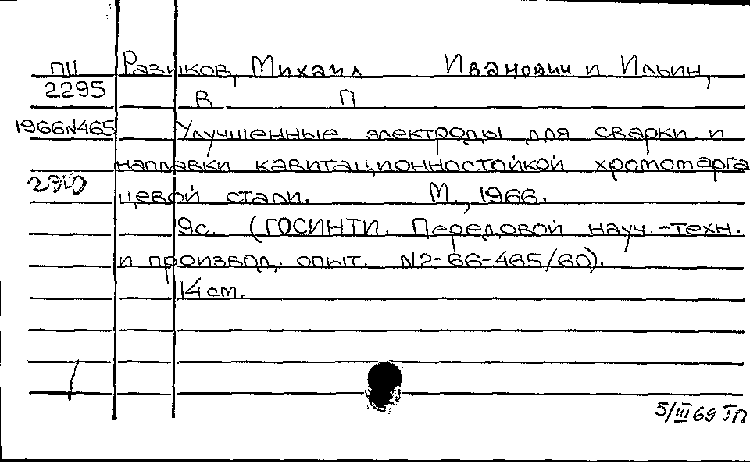 ПII Разиков, Михаил Иванович и Ильин,
2295 В П
1966 №465 Улучшенные электроды для сварки и
наплавки кавитационностойкой хромомарга
2910 цевой стали. М., 1966.
9с. (ГОСИНТИ. Передовой науч.-техн.
и производ. опыт. №2-66-465/60).
14 см.
5/III 69 ТП